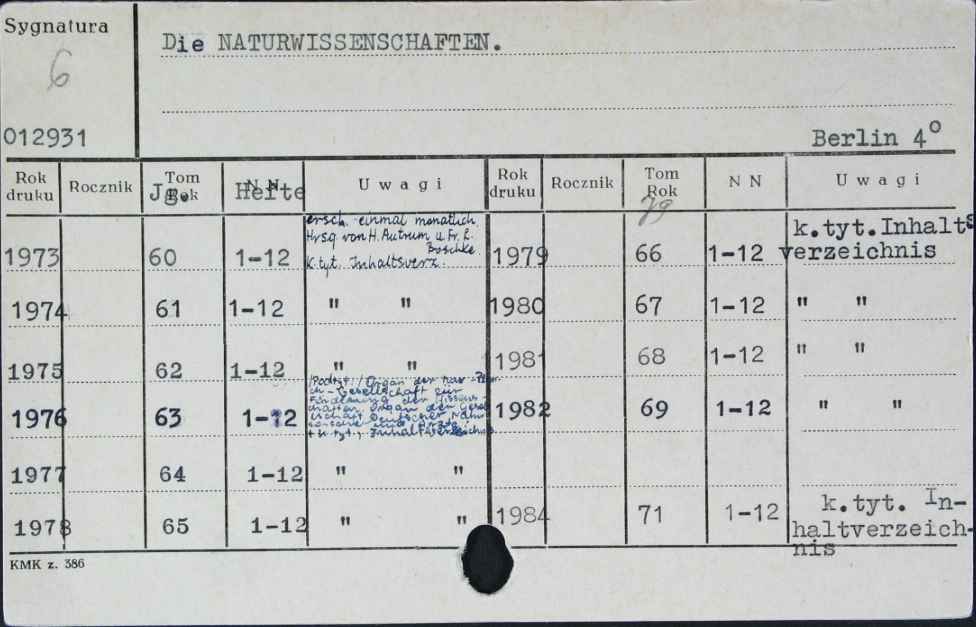 Sygnatura
6
012931
Die NATURWISSENSCHAFTEN.
Berlin 4°
Rok druku Rocznik Tom Rok Jg. N N Hefte U w a g i Rok druku Rocznik Tom Rok Jg N N U w a g i
1973 60 1-12
ersch. einmal monatlich.
Hrsg. von H. Autrum u. Fr. L.
Boschke.
K. tyt. Inhaltsverz.
1979 66 1-12
k.tyt.Inhalts
verzeichnis
1974 61 1-12 " " 1980 67 1-12 " "
1975 62 1-12 " " 1981 68 1-12 " "
1976 63 1-12
/Podtyt:/ Organ der Max-Plan-
ck- Gesellschaft zur
Förderung der Wissens-
chaften. Organ der Gesel-
lschaft Deutscher Natur-
forscher und Ärzte.
+ k. tyt.,
1982 69 1-12 " "
1977 64 1-12 " "
1978 65 1-12 " " 1984 71 1-12
k.tyt. In-
haltverzeich-
nis
KMK z. 386